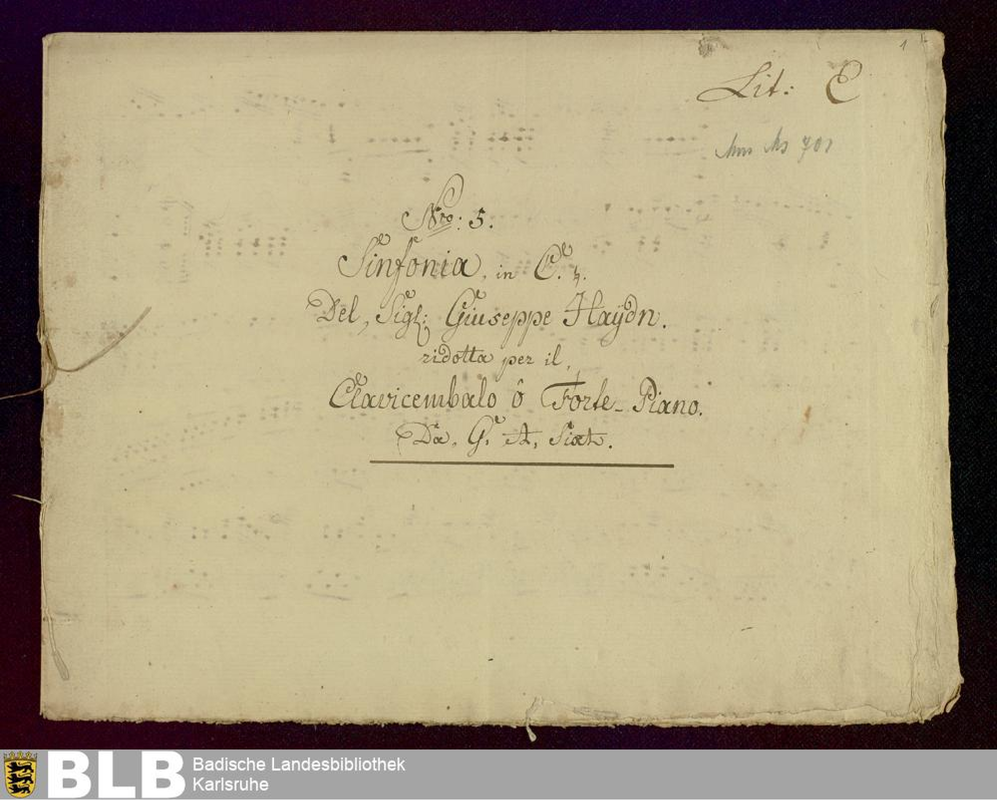 1
Lit: C
Mus Ms 701
Nro: 5.
Sinfonia, in C. ♮.
Del, Sigl: Giuseppe Haydn.
ridotta per il,
Clavicembalo ô Forte-Piano.
Da, G, A, Sixt.
BLB Badische Landesbibliothek
Karlsruhe